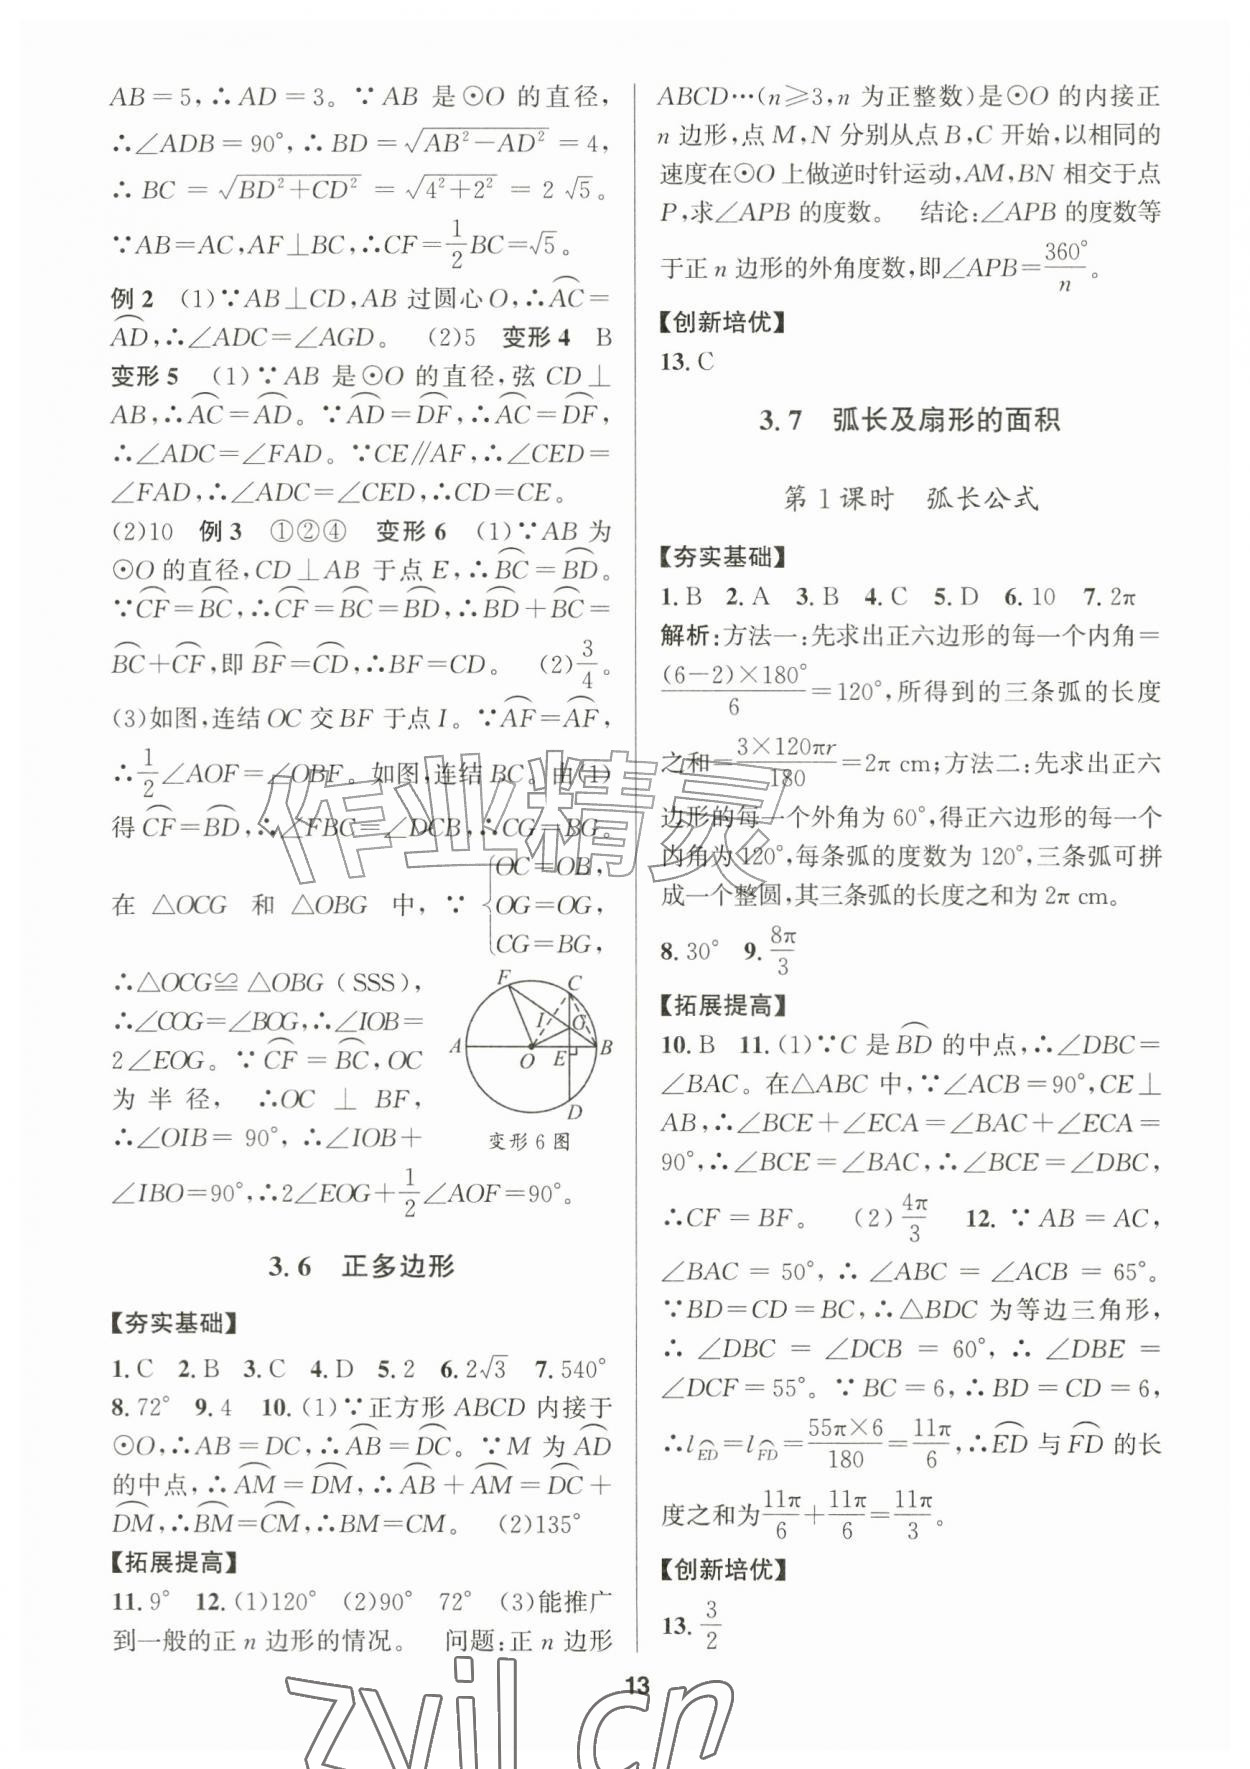 AB=5,∴AD=3。∵AB 是⊙O 的直径,
∴∠ADB=90°,∴BD=√(AB²−AD²)=4,
∴BC=√(BD²+CD²)=√(4²+2²)=2√5。
∵AB=AC,AF⊥BC,∴CF=1/2BC=√5。
例2 (1)∵AB⊥CD,AB 过圆心 O,∴A͡C=
A͡D,∴∠ADC=∠AGD。 (2)5 变形4 B
变形5 (1)∵AB 是⊙O 的直径,弦 CD⊥
AB,∴A͡C=A͡D。∵A͡D=D͡F,∴A͡C=D͡F,
∴∠ADC=∠FAD。∵CE∥AF,∴∠CED=
∠FAD,∴∠ADC=∠CED,∴CD=CE。
(2)10 例3 ①②④ 变形6 (1)∵AB 为
⊙O 的直径,CD⊥AB 于点 E,∴B͡C=B͡D。
∵C͡F=B͡C,∴C͡F=B͡C=B͡D,∴B͡D+B͡C=
B͡C+C͡F,即B͡F=C͡D,∴BF=CD。 (2)3/4。
(3)如图,连结 OC 交 BF 于点 I。∵A͡F=A͡F,
∴1/2∠AOF=∠OBF。如图,连结 BC。由(1)
得C͡F=B͡D,∴∠FBC=∠DCB,∴CG=BG。
在 △OCG 和 △OBG 中,∵{OC=OB,
OG=OG,
CG=BG,
∴△OCG≌△OBG(SSS),
∴∠COG=∠BOG,∴∠IOB=
2∠EOG。∵C͡F=B͡C,OC
为半径,∴OC⊥BF,
∴∠OIB=90°,∴∠IOB+
F C I G A O E B D
变形6图
∠IBO=90°,∴2∠EOG+1/2∠AOF=90°。
3.6 正多边形
【夯实基础】
1.C 2.B 3.C 4.D 5.2 6.2√3 7.540°
8.72° 9.4 10.(1)∵正方形 ABCD 内接于
⊙O,∴AB=DC,∴A͡B=D͡C。∵M 为A͡D
的中点,∴A͡M=D͡M,∴A͡B+A͡M=D͡C+
D͡M,∴B͡M=C͡M,∴BM=CM。 (2)135°
【拓展提高】
11.9° 12.(1)120° (2)90° 72° (3)能推广
到一般的正 n 边形的情况。 问题:正 n 边形
ABCD…(n≥3,n 为正整数)是⊙O 的内接正
n 边形,点 M,N 分别从点 B,C 开始,以相同的
速度在⊙O 上做逆时针运动,AM,BN 相交于点
P,求∠APB 的度数。 结论:∠APB 的度数等
于正 n 边形的外角度数,即∠APB=360°/n。
【创新培优】
13.C
3.7 弧长及扇形的面积
第1课时 弧长公式
【夯实基础】
1.B 2.A 3.B 4.C 5.D 6.10 7.2π
解析:方法一:先求出正六边形的每一个内角=
(6−2)×180°/6=120°,所得到的三条弧的长度
之和=3×120πr/180=2π cm;方法二:先求出正六
边形的每一个外角为60°,得正六边形的每一个
内角为120°,每条弧的度数为120°,三条弧可拼
成一个整圆,其三条弧的长度之和为2π cm。
8.30° 9.8π/3
【拓展提高】
10.B 11.(1)∵C 是B͡D的中点,∴∠DBC=
∠BAC。在△ABC 中,∵∠ACB=90°,CE⊥
AB,∴∠BCE+∠ECA=∠BAC+∠ECA=
90°,∴∠BCE=∠BAC,∴∠BCE=∠DBC,
∴CF=BF。 (2)4π/3 12.∵AB=AC,
∠BAC=50°,∴∠ABC=∠ACB=65°。
∵BD=CD=BC,∴△BDC 为等边三角形,
∴∠DBC=∠DCB=60°,∴∠DBE=
∠DCF=55°。∵BC=6,∴BD=CD=6,
∴l E͡D=l F͡D=55π×6/180=11π/6,∴E͡D与F͡D的长
度之和为11π/6+11π/6=11π/3。
【创新培优】
13.3/2
13
作业精灵
zyil.cn